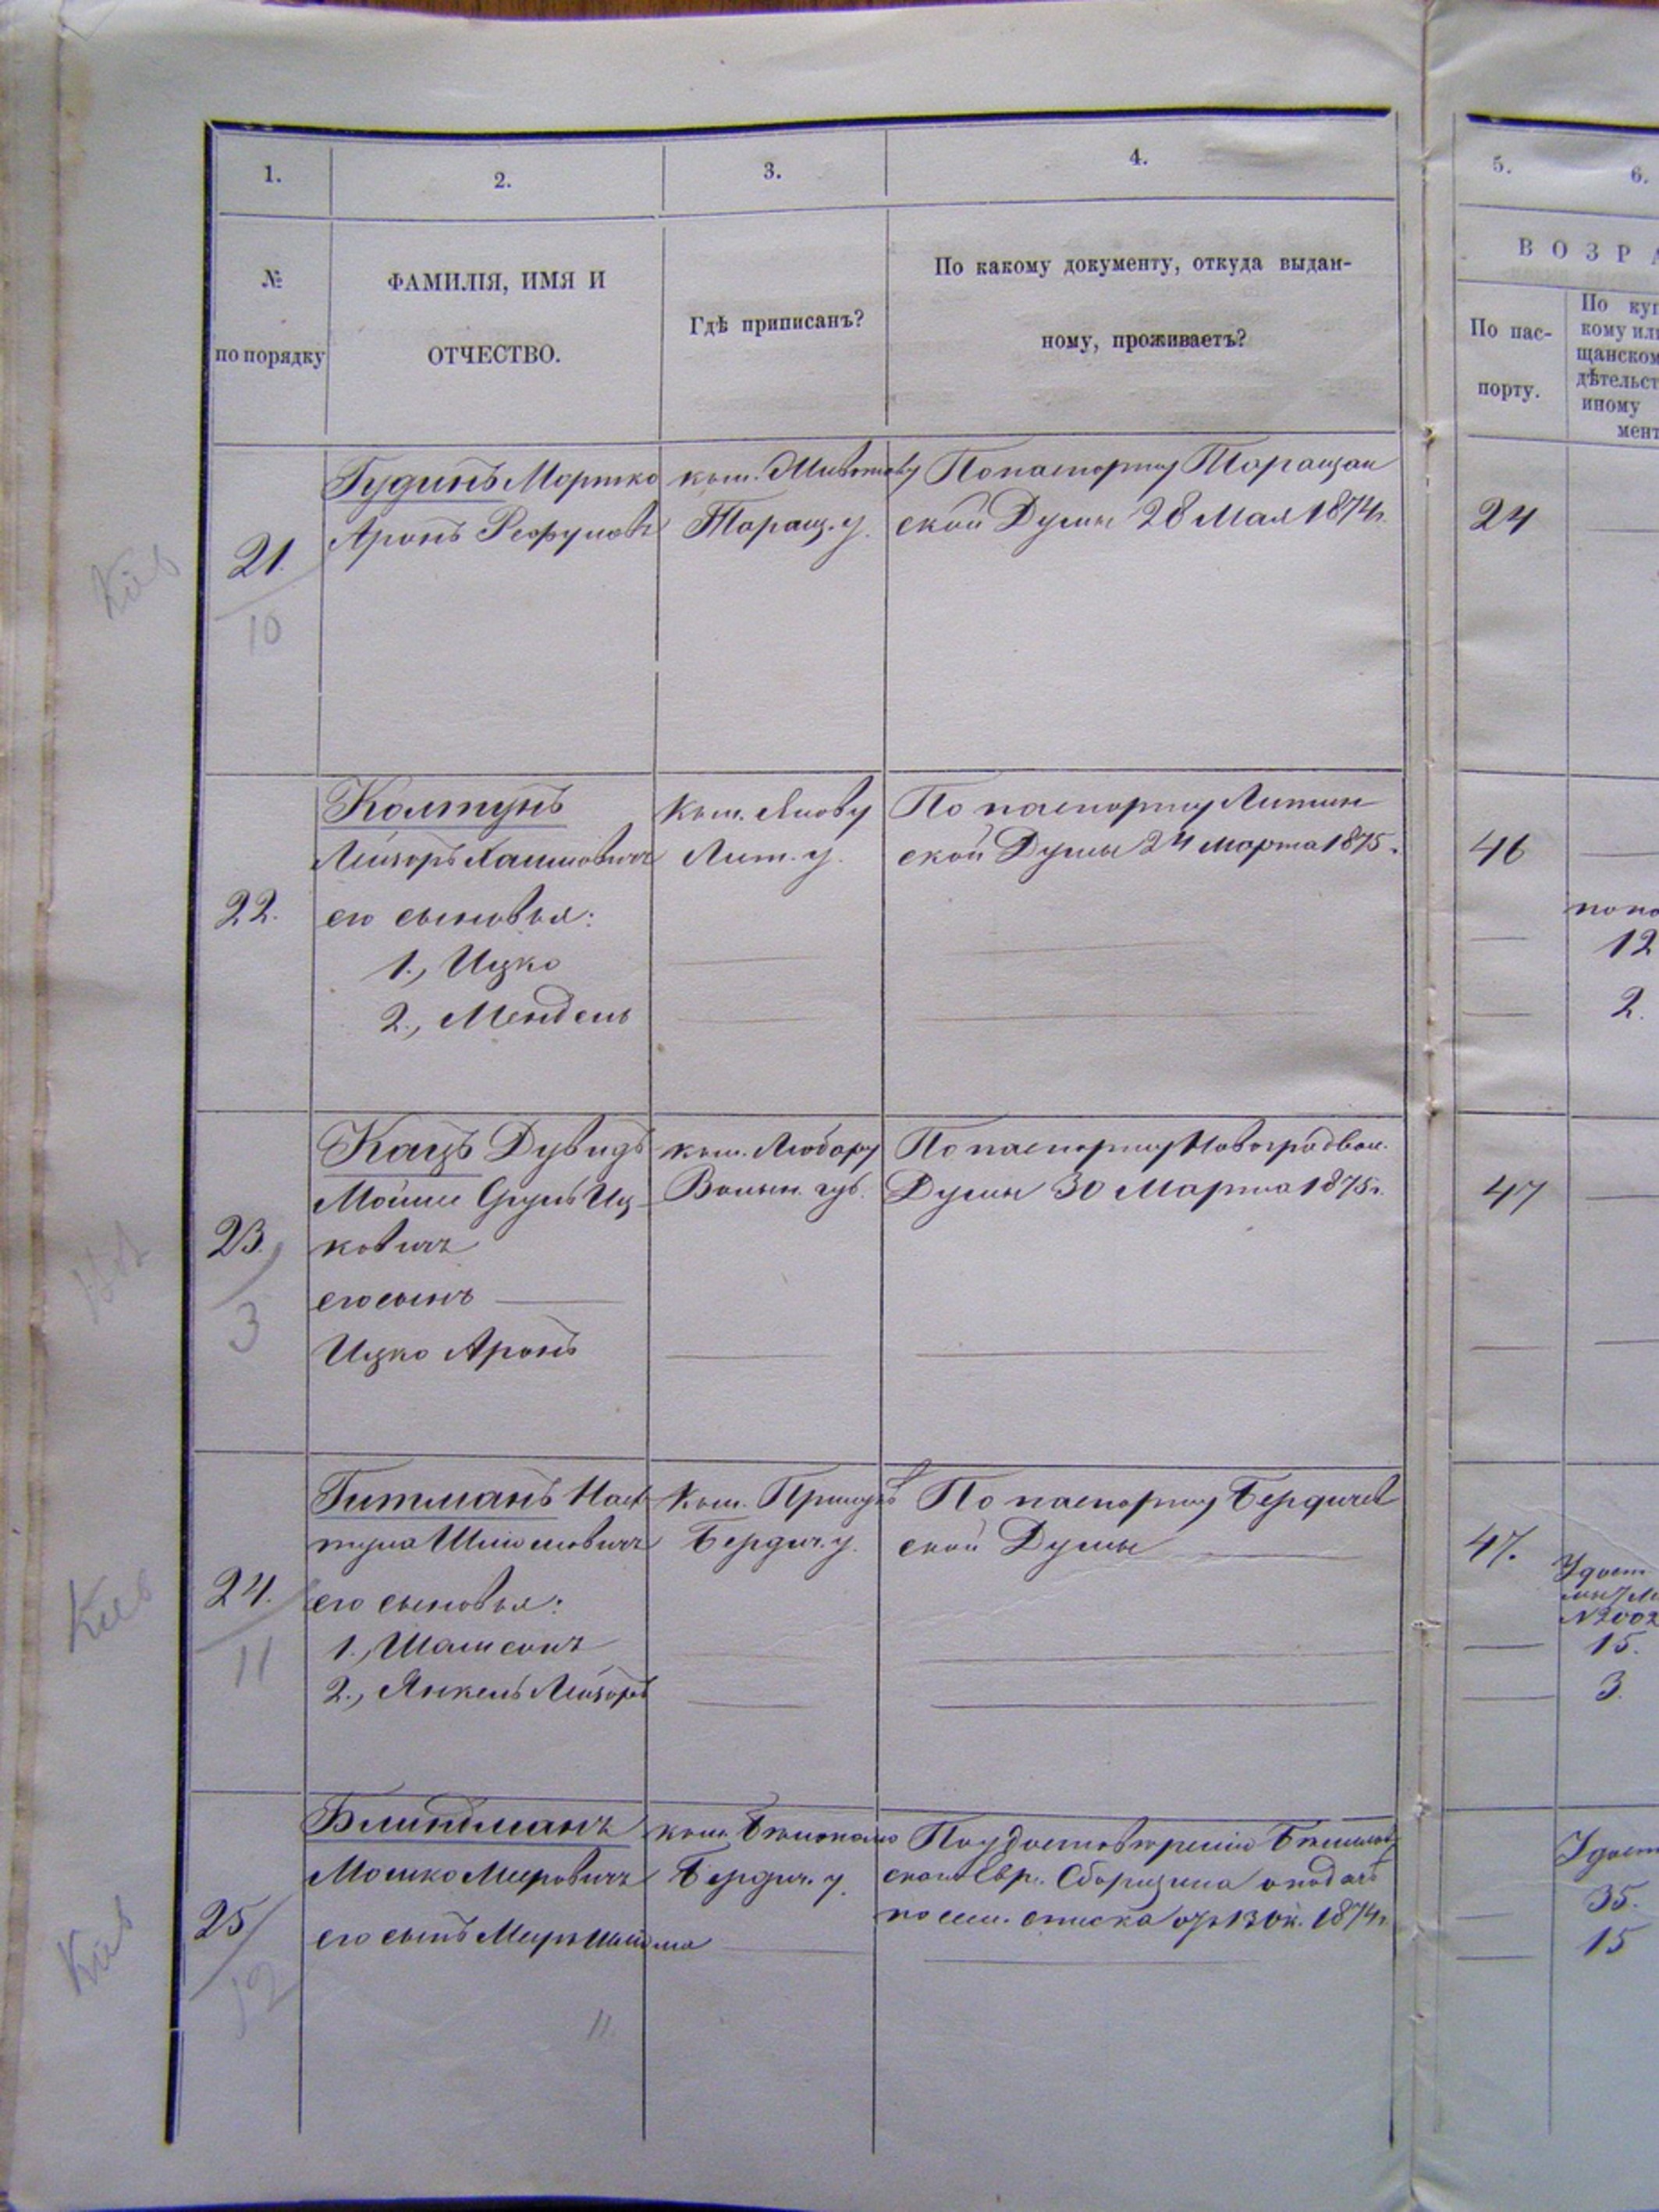 1.
2.
3.
4.
5.
6.
ВОЗРА
№
по порядку
ФАМИЛІЯ, ИМЯ И
ОТЧЕСТВО.
Гдѣ приписанъ?
По какому документу, откуда выдан-
ному, проживаетъ?
По пас-
порту.
По куп
кому или
щанском
дѣтельст
иному
мент
21.
10
Гудинъ Мортко
Аронъ
къ м.
Таращ. у.
По паспорту Таращан
ской Думы 28 Мая 1874 г.
24
22.
Колтунъ
Лейзоръ Хаимовичъ
его сыновья:
1., Ицко
2., Мендель
къ м. Янову
Лит. у.
По паспорту Литин
ской Думы 24 марта 1875.
46
12
2.
23.
3
Кацъ Дувидъ
Мойше Сруль Иц
ковичъ
его сынъ
Ицко Аронъ
къ м. Любару
Волын. губ.
По паспорту Новоградвол.
Думы 30 Марта 1875 г.
47
Кіев
24.
11
Гитманъ Наф
тула Шліомовичъ
его сыновья:
1., Шамсонъ
2., Янкель Лейзоръ
къ м.
Бердич. у.
По паспорту Бердичев
ской Думы
47.
№2002
15.
3.
Кіев
25
12
Блиндманъ
Мошко Мееровичъ
его сынъ Меръ
къ м.
Бердич. у.
По удостовѣренію
Евр. Сборщика о подачѣ
посем. списка отъ 13 Ок. 1874 г.
35.
15
11.